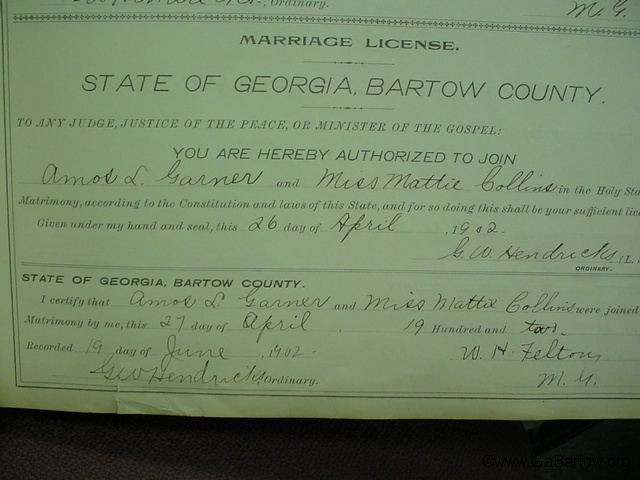 Ordinary. M. G.
MARRIAGE LICENSE.
STATE OF GEORGIA, BARTOW COUNTY.
TO ANY JUDGE, JUSTICE OF THE PEACE, OR MINISTER OF THE GOSPEL:
YOU ARE HEREBY AUTHORIZED TO JOIN
Amos L. Garner and Miss Mattie Collins in the Holy Sta
Matrimony, according to the Constitution and laws of this State, and for so doing this shall be your sufficient lic
Given under my hand and seal, this 26 day of April, 1902.
G. W. Hendricks (L. S
ORDINARY.
STATE OF GEORGIA, BARTOW COUNTY.
I certify that Amos L Garner and Miss Mattie Collins were joined
Matrimony by me, this 27 day of April, 19 Hundred and two.
Recorded 19 day of June, 1902- W. H. Felton,
GW Hendricks Ordinary. M. G.
©www.GaBartow.org